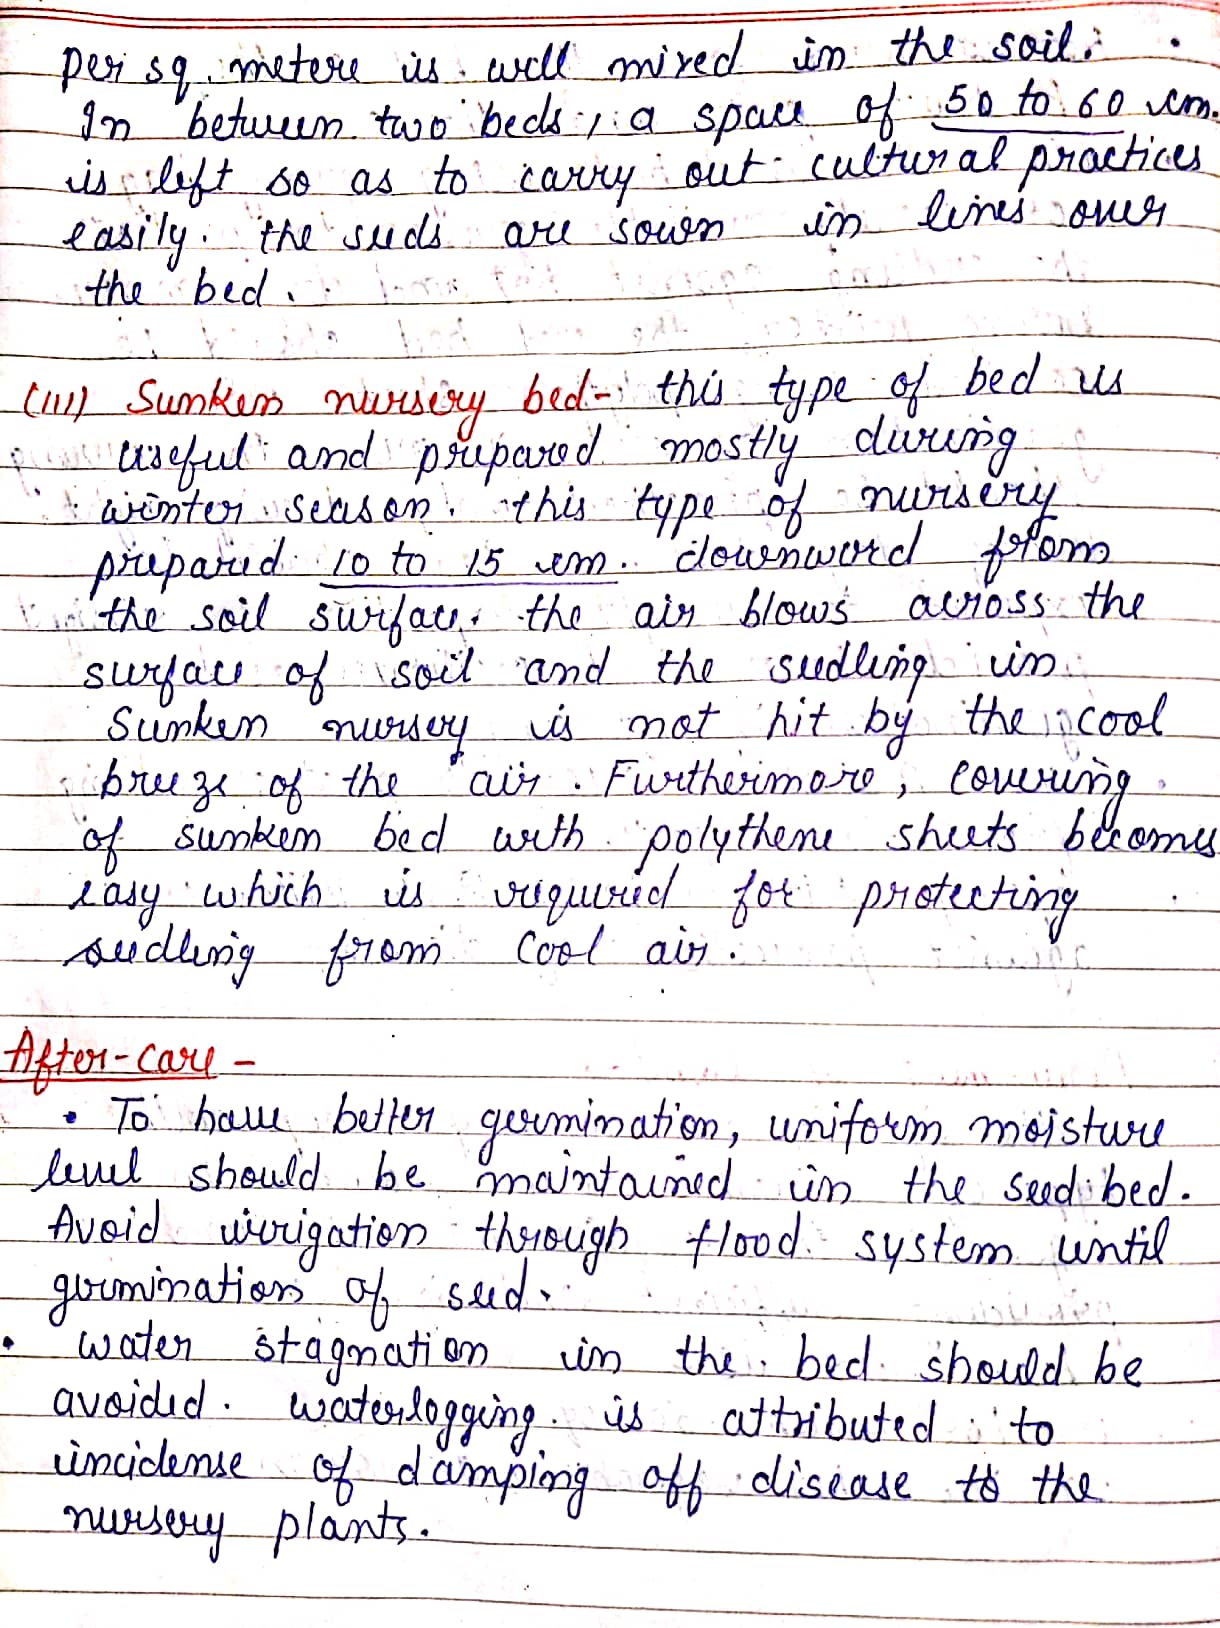 per sq. metere is well mixed in the soil.
In between two beds, a space of 50 to 60 cm.
is left so as to carry out cultural practices
easily. the seeds are sown in lines over
the bed.
(III) Sunken nursery bed- this type of bed is
useful and prepared mostly during
winter season. this type of nursery
prepared 10 to 15 cm. downword from
the soil surface. the air blows across the
surface of soil and the seedling in
Sunken nursery is not hit by the cool
breeze of the air. Furthermore, covering
of sunken bed with polythene sheets becomes
easy which is required for protecting
seedling from cool air.
After-care -
• To have better germination, uniform moisture
level should be maintained in the seed bed.
Avoid irrigation through flood system until
germination of seed.
• water stagnation in the bed should be
avoided. waterlogging is attributed to
incidense of damping off disease to the
nursery plants.